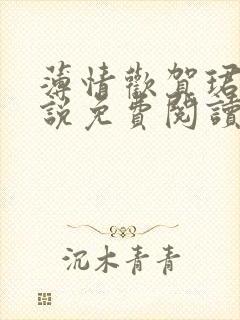 薄情歡賀珺
說免費閱讀
沉木青青